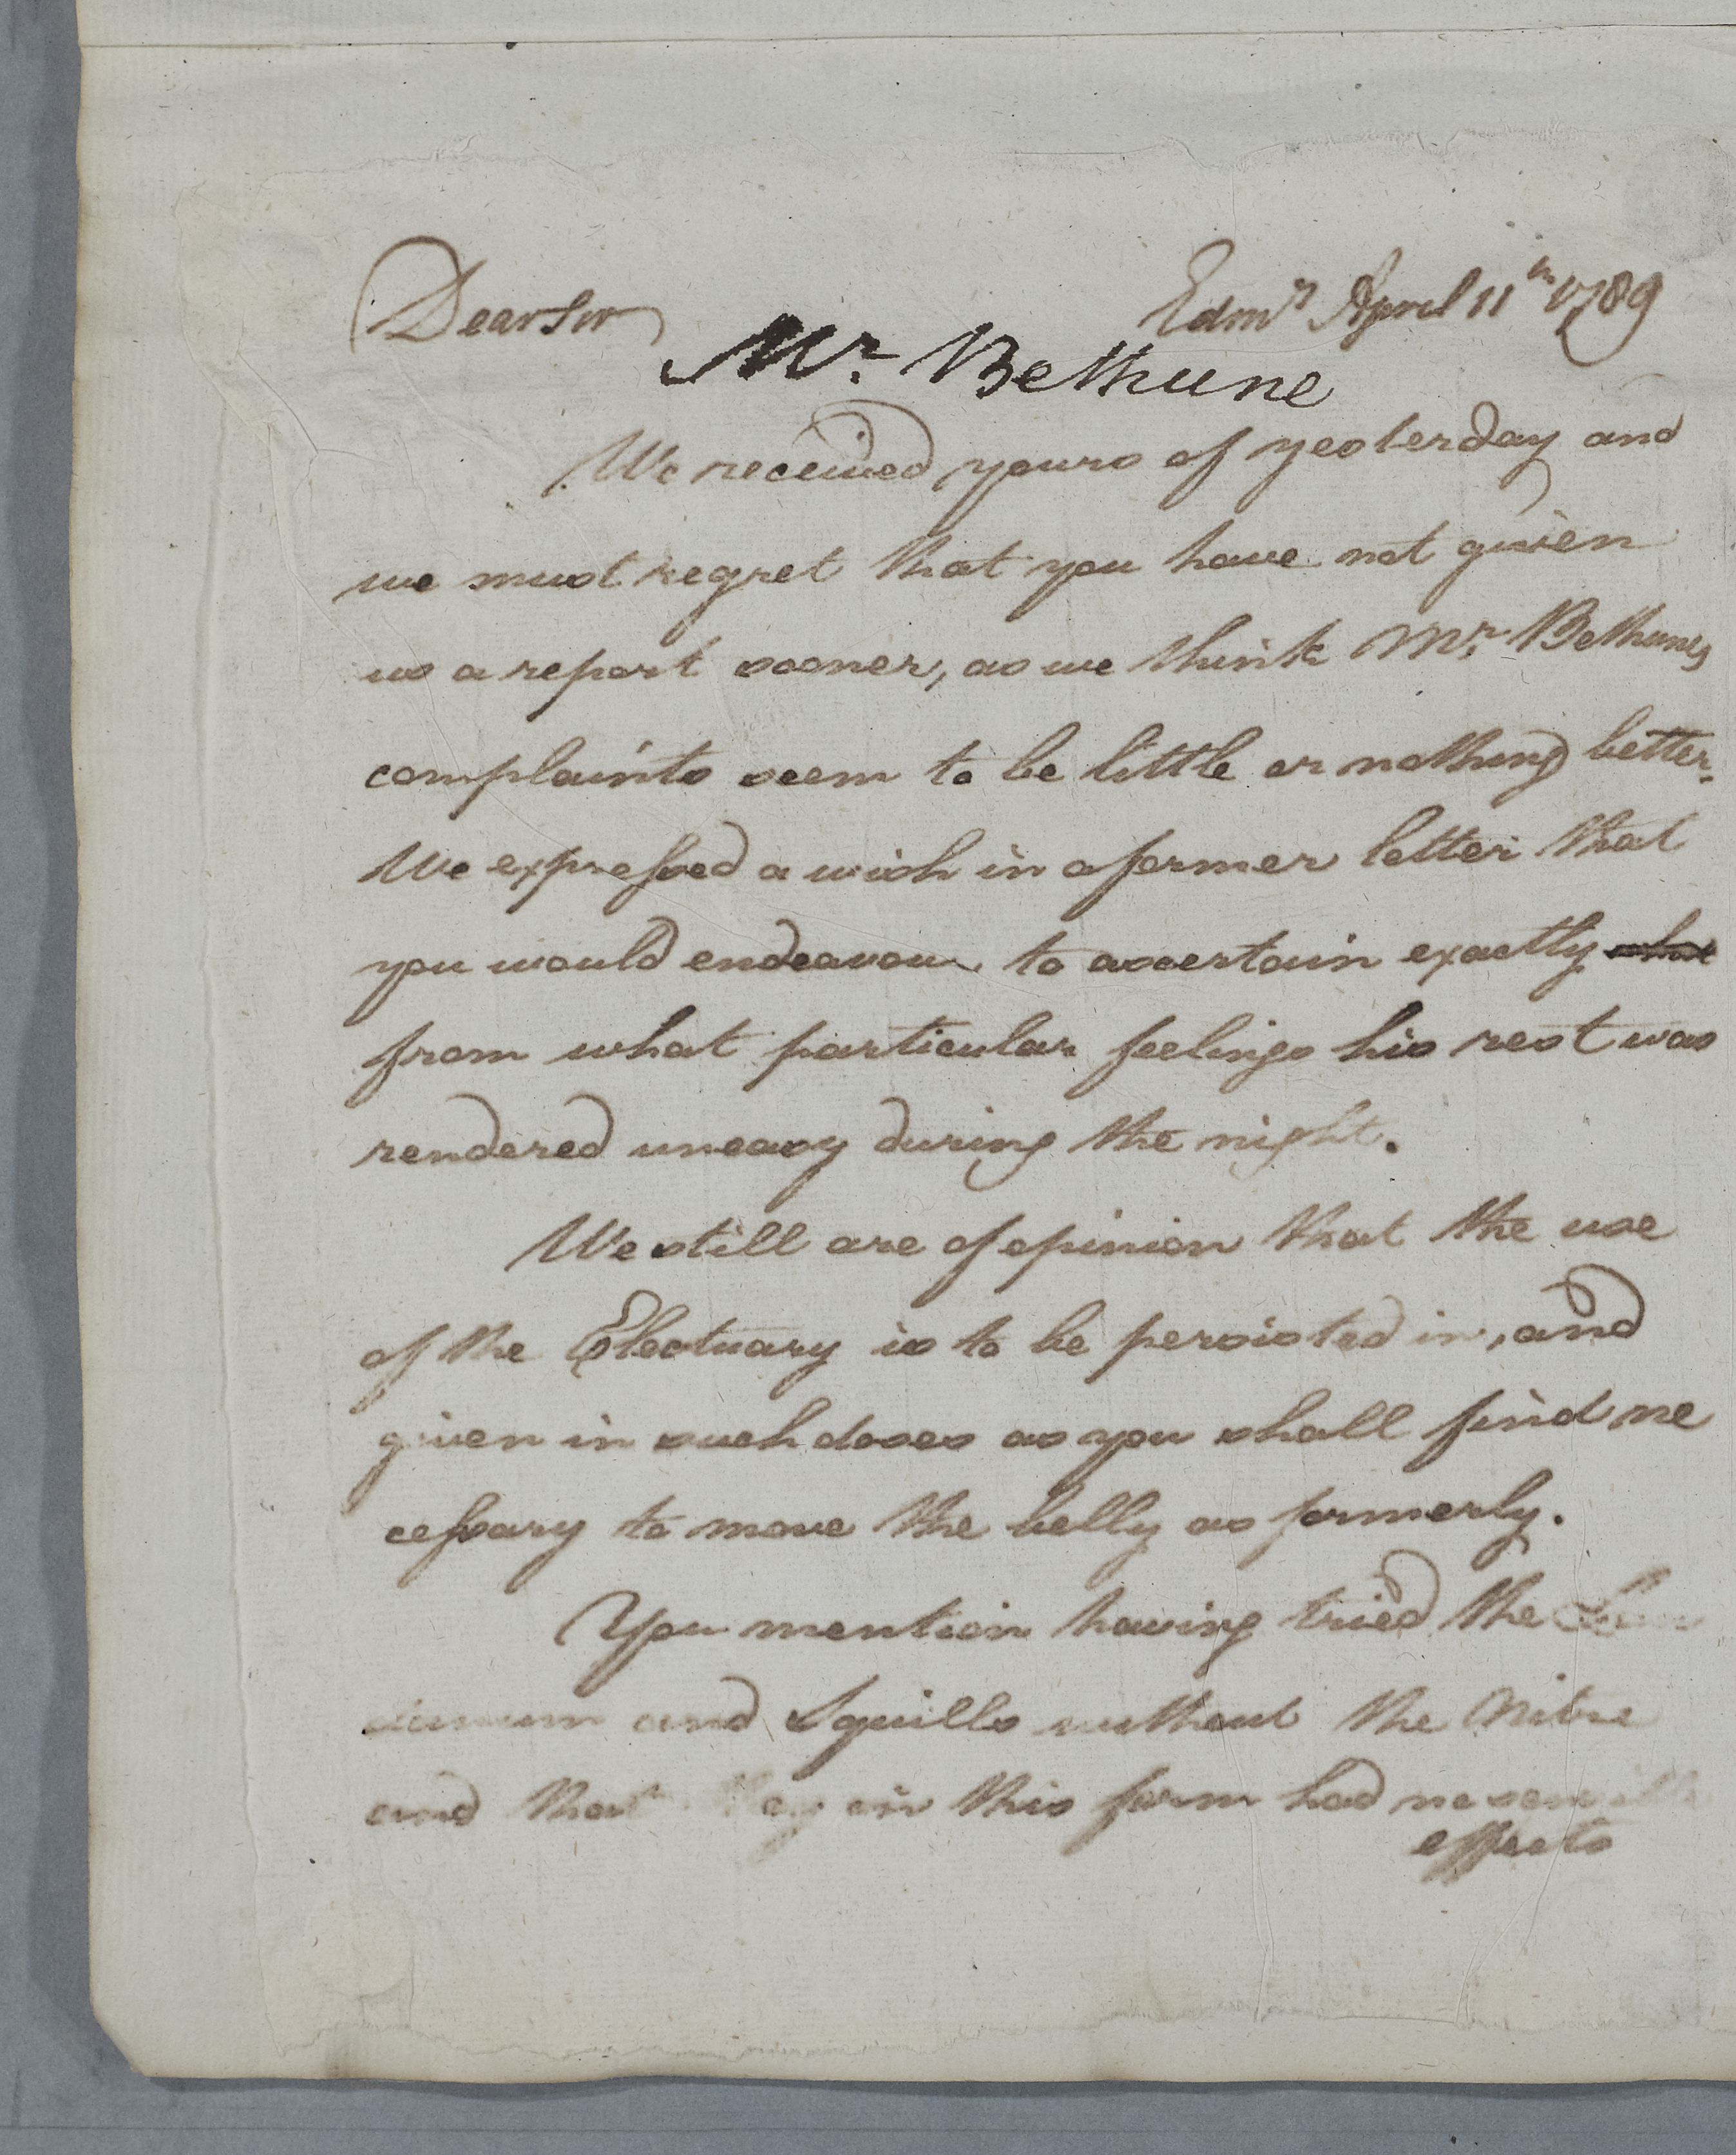 Dear Sir
Edin.r April 11th 1789
Mr. Bethune
We received yours of yesterday and
we must regret that you have not given
us a report sooner, as we think Mr. Bethunes
complaints seem to be little or nothing better.
We expressed a wish in a former letter that
you would endeavour to ascertain exactly what
from what particular feelings his rest was
rendered uneasy during the night.
We still are of opinion that the use
of the Electuary is to be persisted in, and
given in such doses as you shall find ne
cessary to move the belly as formerly.
You mention having tried the
and Squills without the Nitre
and that they in this form had no sensible
effects